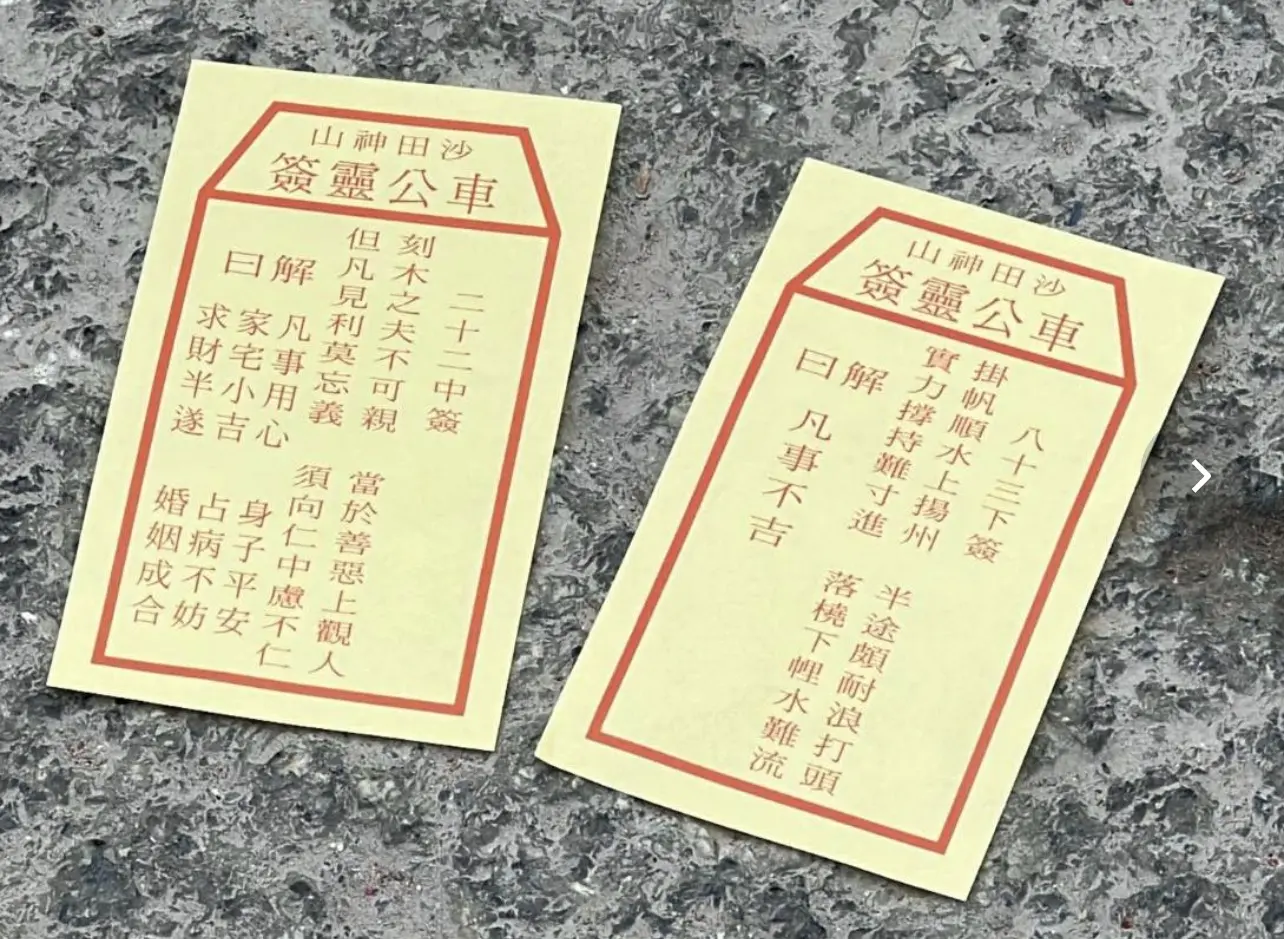 沙田神山
車公靈簽
二十二中簽
刻木之夫不可親
但凡見利莫忘義
當於善惡上觀人
須向仁中慮不仁
解曰
凡事用心
家宅小吉
求財半遂
身子平安
占病不妨
婚姻成合
沙田神山
車公靈簽
八十三下簽
掛帆順水上揚州
實力撐持難寸進
半途頗耐浪打頭
落橈下𢃇水難流
解曰
凡事不吉